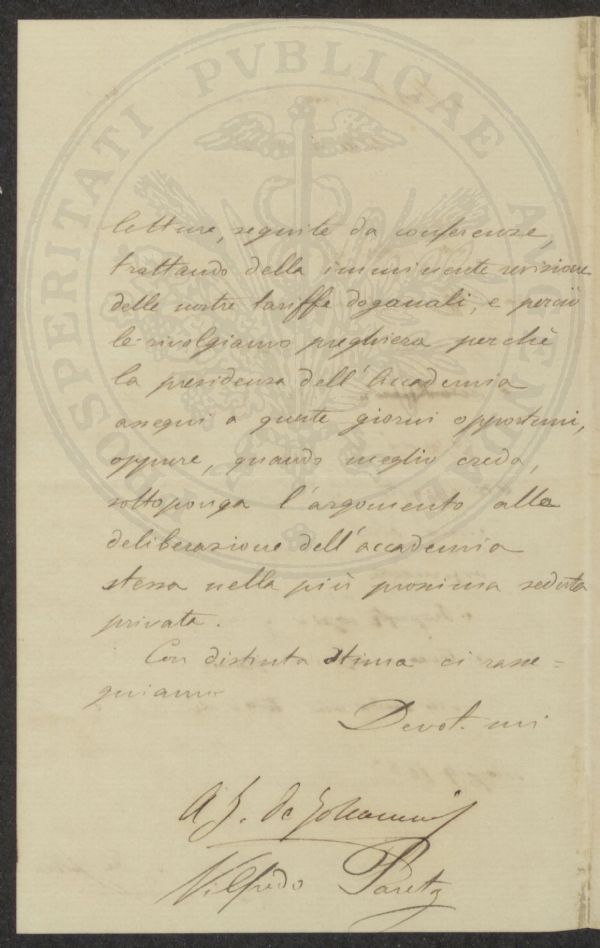 PROSPERITATI PVBLICAE AVGENDAE
letture, seguite da conferenze,
trattando della imminente revisione
delle nostre tariffe doganali, e perciò
le rivolgiamo preghiera perchè
la presidenza dell'Accademia
assegni a queste giorni opportuni,
oppure, quando meglio creda,
sottoponga l'argomento alla
deliberazione dell'accademia
stessa nella più prossima seduta
privata.
Con distinta stima ci rasse=
gniamo
Devot.mi
A J. de Johannis
Vilfredo Pareto